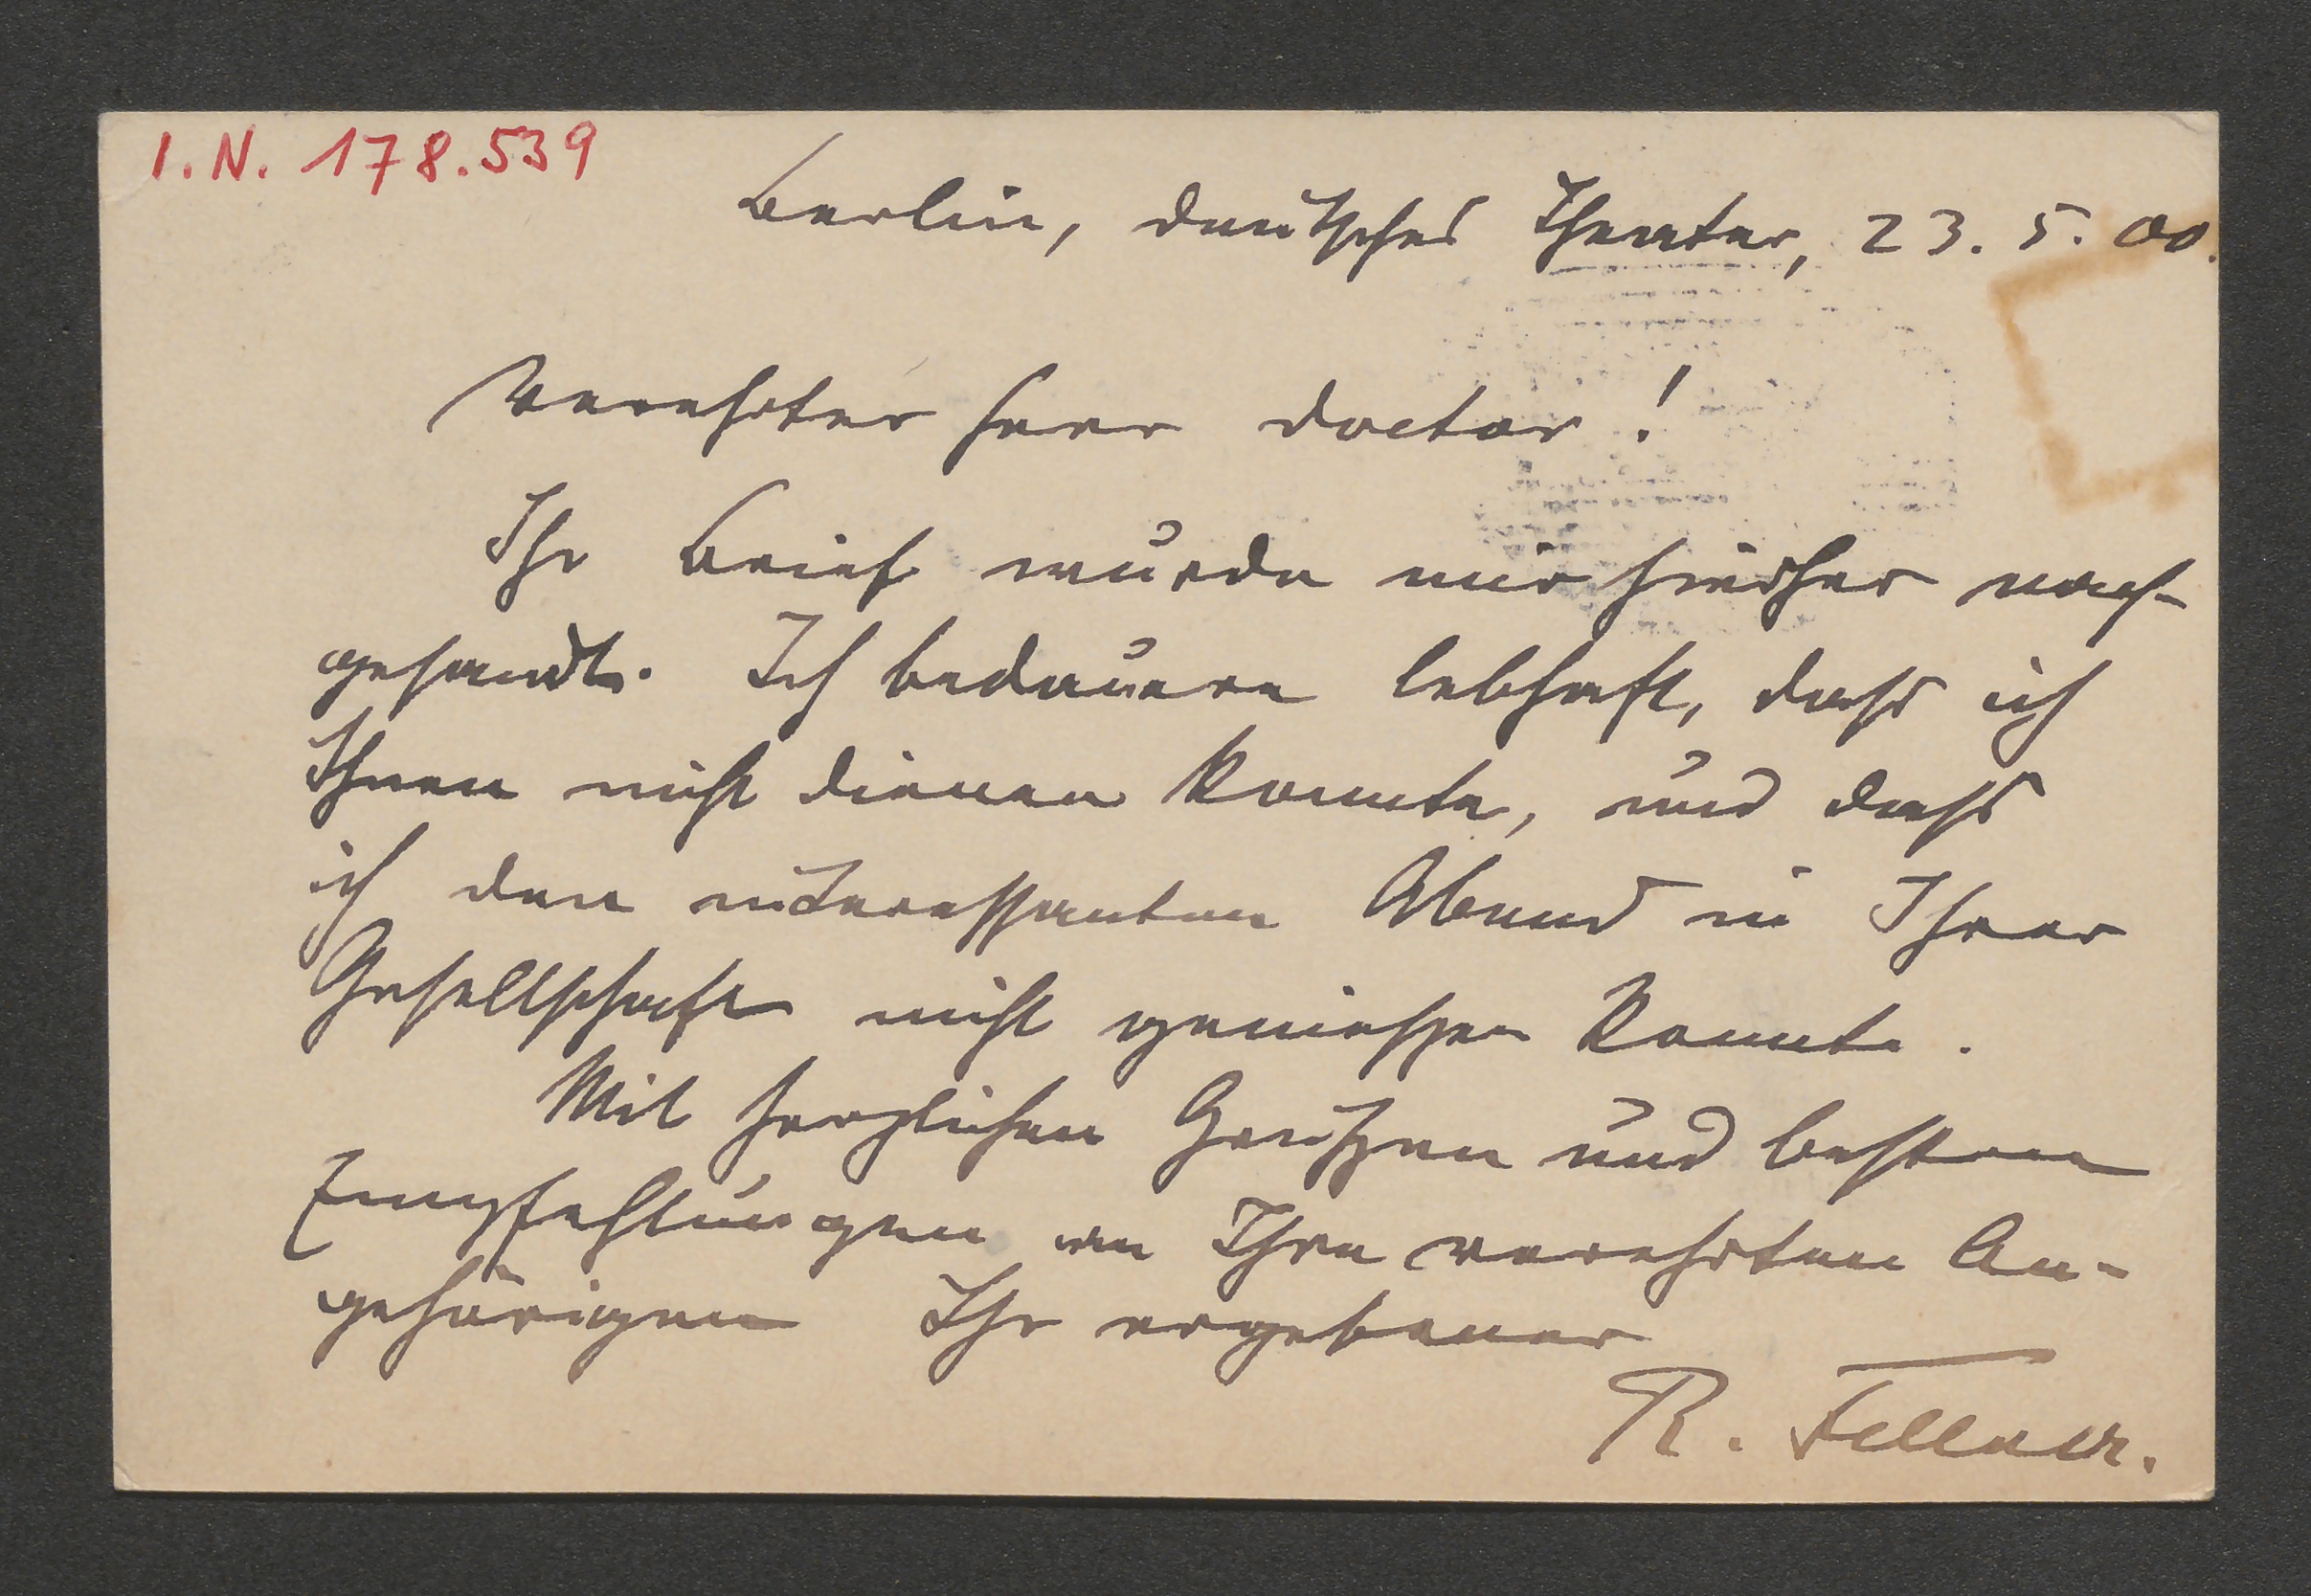 I.N. 178.539
Berlin, deutsches Theater, 23. 5. 00.
Verehrter Herr Doctor!
Ihr Brief wurde mir hierher nach-
gesandt. Ich bedauere lebhaft, dass ich
Ihnen nicht dienen konnte, und dass
ich den interessanten Abend in Ihrer
Gesellschaft nicht geniessen konnte.
Mit herzlichen Grüssen und besten
Empfehlungen an Ihre verehrten An-
gehörigen Ihr ergebener
R. Fellner.